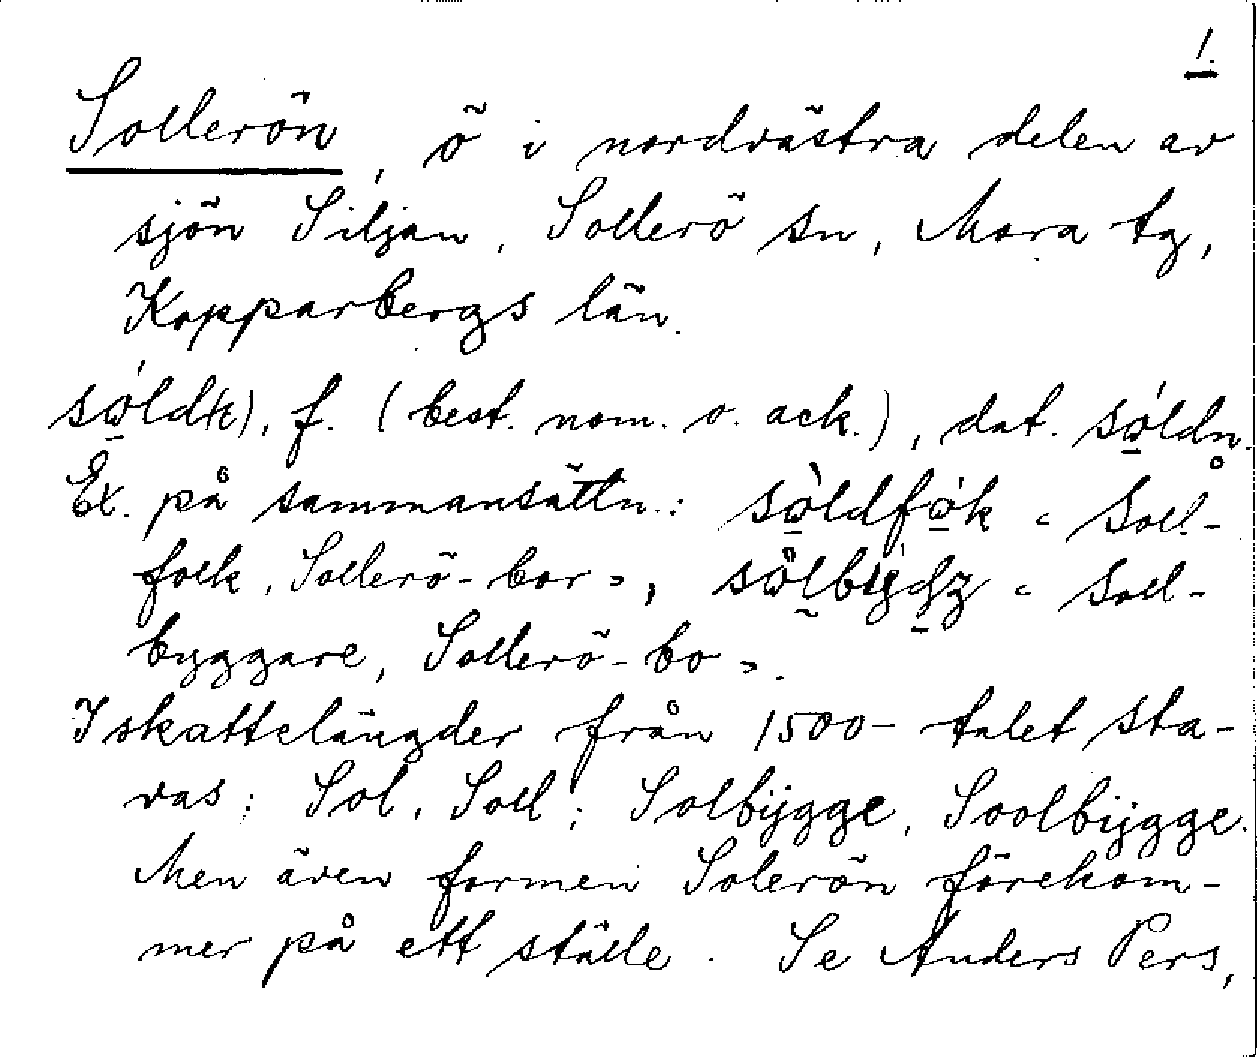 1.
Sollerön, ö i nordvästra delen av
sjön Siljan, Sollerö sn, Mora tg,
Kopparbergs län.
f. (best. nom. o. ack.), dat.
Ex. på sammansättn.: "Soll-
folk, Sollerö-bor", "Soll-
byggare, Sollerö-bo".
I skattelängder från 1500-talet sta-
vas: Sol, Soll; Solbijgge, Soolbijgge.
Men även formen Solerön förekom-
mer på ett ställe. Se Anders Pers,